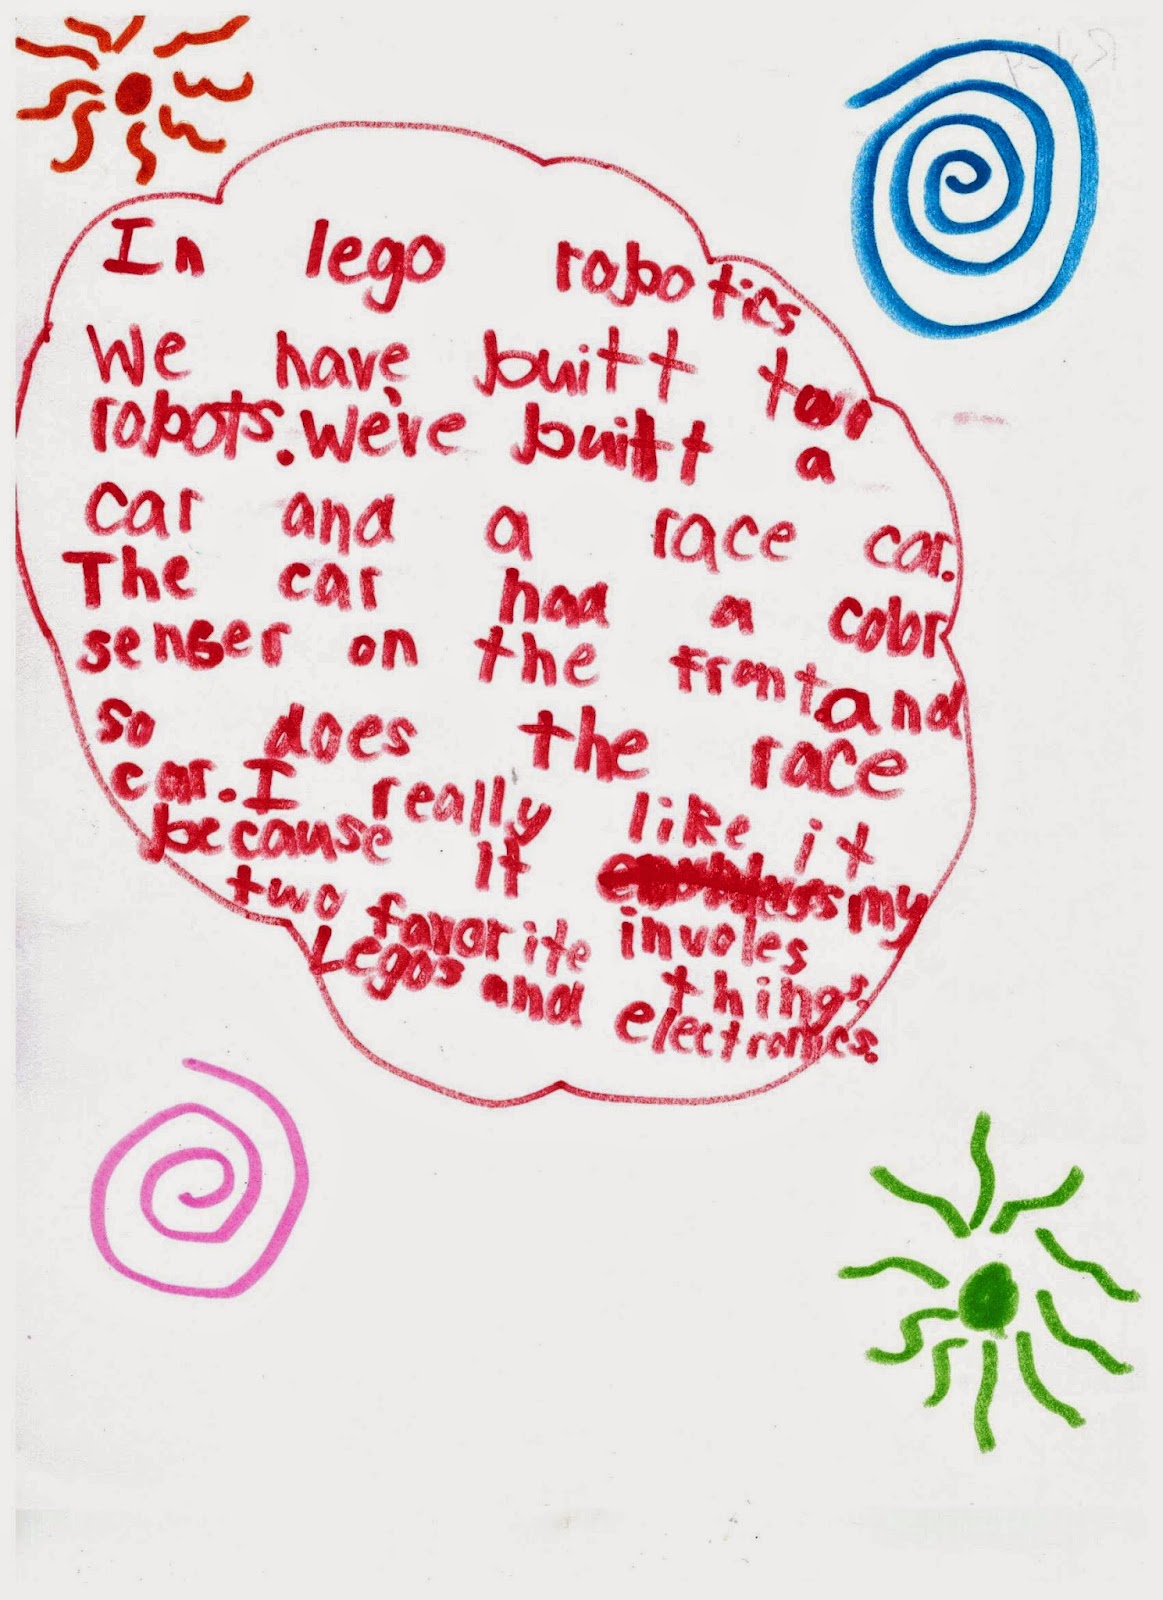 Riley
In lego robotics
We have buitt two
robots. We've buitt a
car and a race car.
The car had a color
senser on the front. and
so does the race
car. I really like it
because it my
two favorite involes
Legos and things.
electronics.